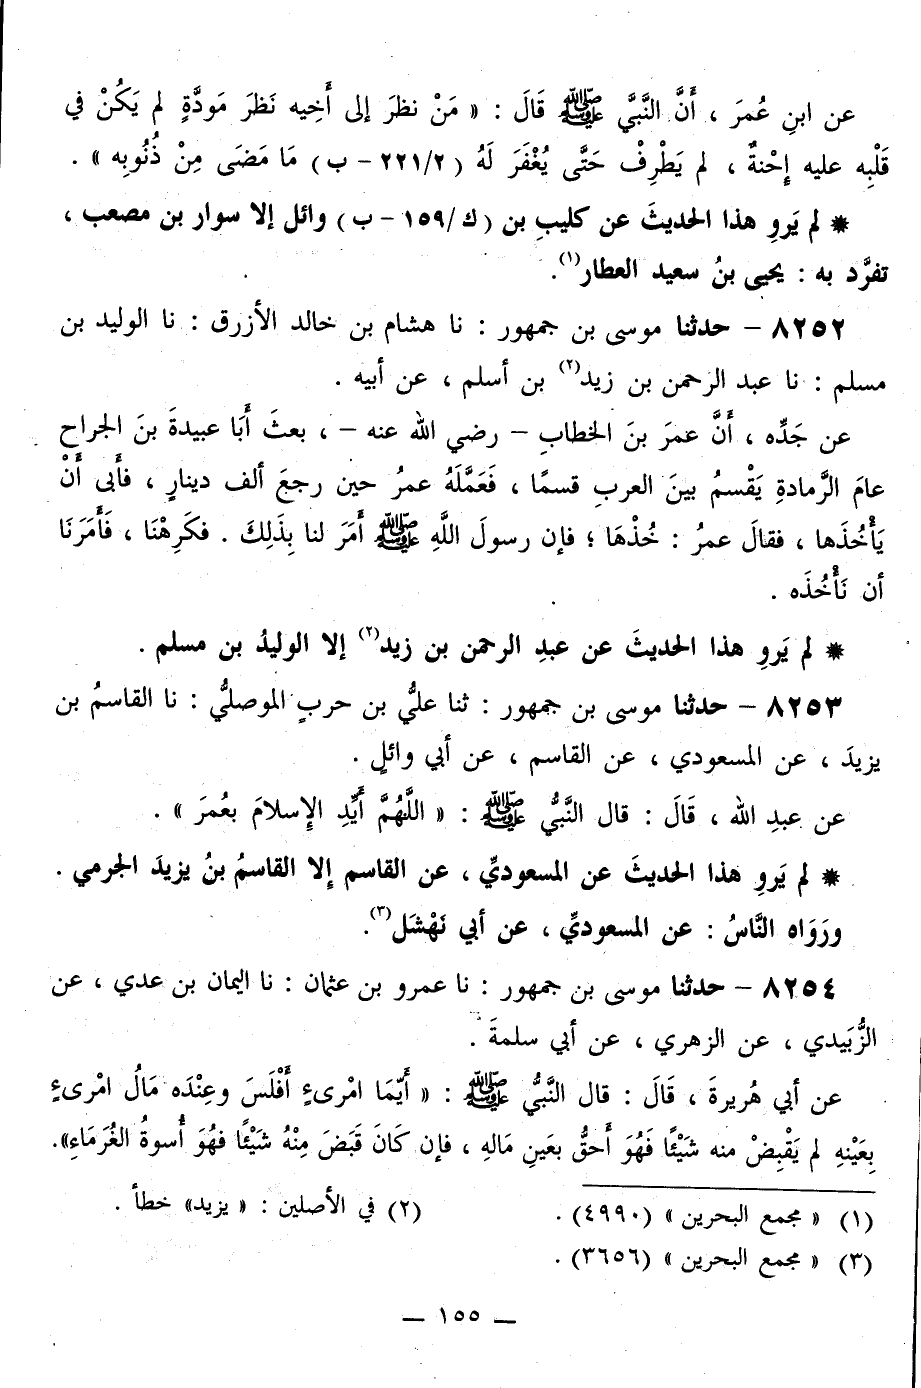 عن ابنِ عُمرَ ، أَنَّ النَّبيَّ ﷺ قَالَ : « مَنْ نظرَ إلى أَخِيه نَظرَ مَودَّةٍ لم يَكُنْ في
قَلْبِه عليه إِحْنةٌ ، لم يَطْرِفْ حَتَّى يُغْفَرَ لَهُ ( ٢٢١/٢ - ب ) مَا مَضَى مِنْ ذُنُوبِه » .
* لم يَروِ هذا الحديثَ عن كليبِ بن ( ك/١٥٩ - ب ) وائل إلا سوار بن مصعب ،
تفرَّد به : يحيى بنُ سعيد العطار(١).
٨٢٥٢ - حدثنا موسى بن جمهور : نا هشام بن خالد الأزرق : نا الوليد بن
مسلم : نا عبد الرحمن بن زيد(٢) بن أسلم ، عن أبيه .
عن جَدِّه ، أَنَّ عمرَ بنَ الخطابِ - رضي الله عنه - ، بعثَ أَبَا عبيدةَ بنَ الجراح
عامَ الرَّمادةِ يَقْسمُ بينَ العربِ قسمًا ، فَعَمَّلَهُ عمرُ حين رجعَ ألف دينارٍ ، فأَبى أَنْ
يَأْخُذَها ، فقالَ عمرُ : خُذْهَا ؛ فإن رسولَ اللَّهِ ﷺ أَمَرَ لنا بِذَلِكَ . فكَرِهْنَا ، فَأَمَرَنَا
أن نَأْخُذَه .
* لم يَروِ هذا الحديثَ عن عبدِ الرحمن بن زيد(٢) إلا الوليدُ بن مسلم .
٨٢٥٣ - حدثنا موسى بن جمهور : ثنا عليُّ بن حربٍ الموصليُّ : نا القاسمُ بن
يزيدَ ، عن المسعودي ، عن القاسم ، عن أبي وائلٍ .
عن عبدِ الله ، قَالَ : قال النَّبيُّ ﷺ : « اللَّهُمَّ أَيِّدِ الإِسلامَ بعُمرَ » .
* لم يَروِ هذا الحديثَ عن المسعوديِّ ، عن القاسم إِلا القاسمُ بنُ يزيدَ الجرمي .
ورَوَاه النَّاسُ : عن المسعوديِّ ، عن أبي نَهْشَل(٣).
٨٢٥٤ - حدثنا موسى بن جمهور : نا عمرو بن عثمان : نا اليمان بن عدي ، عن
الزُّبَيدي ، عن الزهري ، عن أبي سلمةَ .
عن أبي هُريرةَ ، قَالَ : قال النَّبيُّ ﷺ : « أَيّمَا امْرىءٍ أَفْلَسَ وعِنْدَه مَالُ امْرىءٍ
بِعَيْنهِ لم يَقْبِضْ منه شَيْئًا فَهُوَ أَحقُّ بعَينِ مَالهِ ، فإن كَانَ قَبَضَ مِنْهُ شَيْئًا فهُوَ أُسوةُ الغُرَمَاءِ».
(١) « مجمع البحرين » (٤٩٩٠) . (٢) في الأصلين : « يزيد» خطأ .
(٣) « مجمع البحرين » (٣٦٥٦) .
— ١٥٥ —